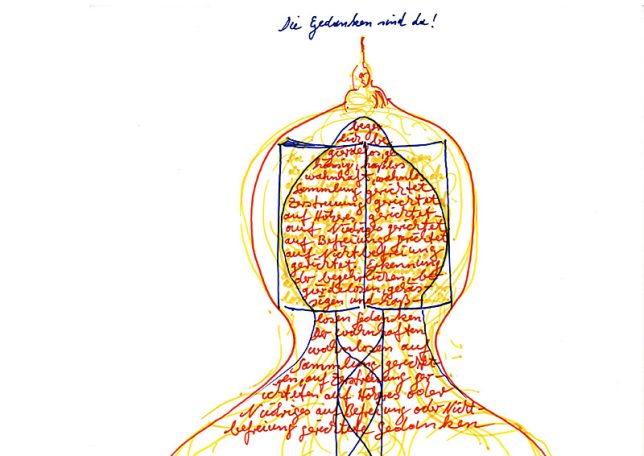 Die Gedanken sind da!
begeh
lich be
gierdelos, ge
hässig, haßlos
wahnhaft, wahnlos
Sammlung gerichtet
Zerstreuung gerichtet
auf Höheres gerichtet
auf Niedriges gerichtet
auf Befreiung gerichtet
auf Nichtbefreiung
gerichtet Erkennung
der begehrlichen, be-
gierdelosen, gehäs-
sigen und haß-
losen Gedanken
der wahnhaften
wahnlosen auf
Sammlung gerichte-
ten, auf Zerstreuung ger-
ichteten auf Höheres oder
Niedriges auf Befreiung oder Nicht-
befreiung gerichtete Gedanken